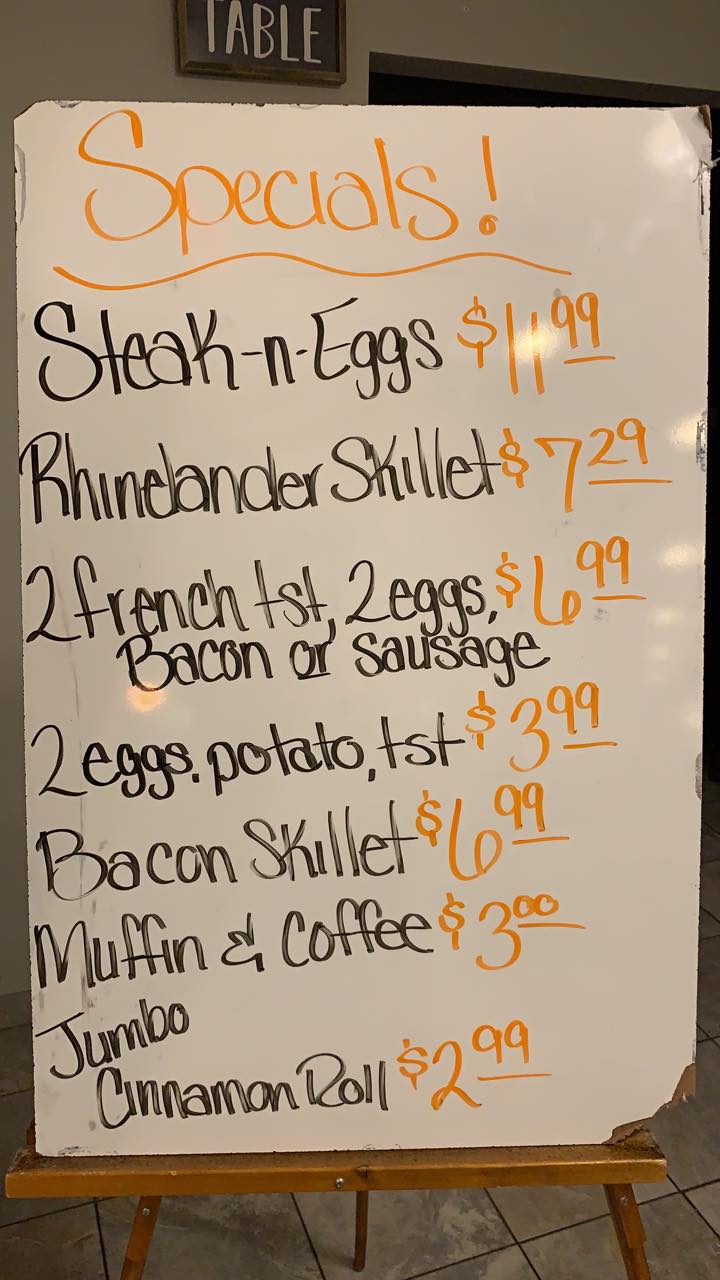 TABLE
Specials!
Steak-n-Eggs $11.99
Rhinelander Skillet $7.29
2 french tst, 2 eggs, $6.99
Bacon or sausage
2 eggs, potato, tst $3.99
Bacon Skillet $6.99
Muffin & Coffee $3.00
Jumbo
Cinnamon Roll $2.99